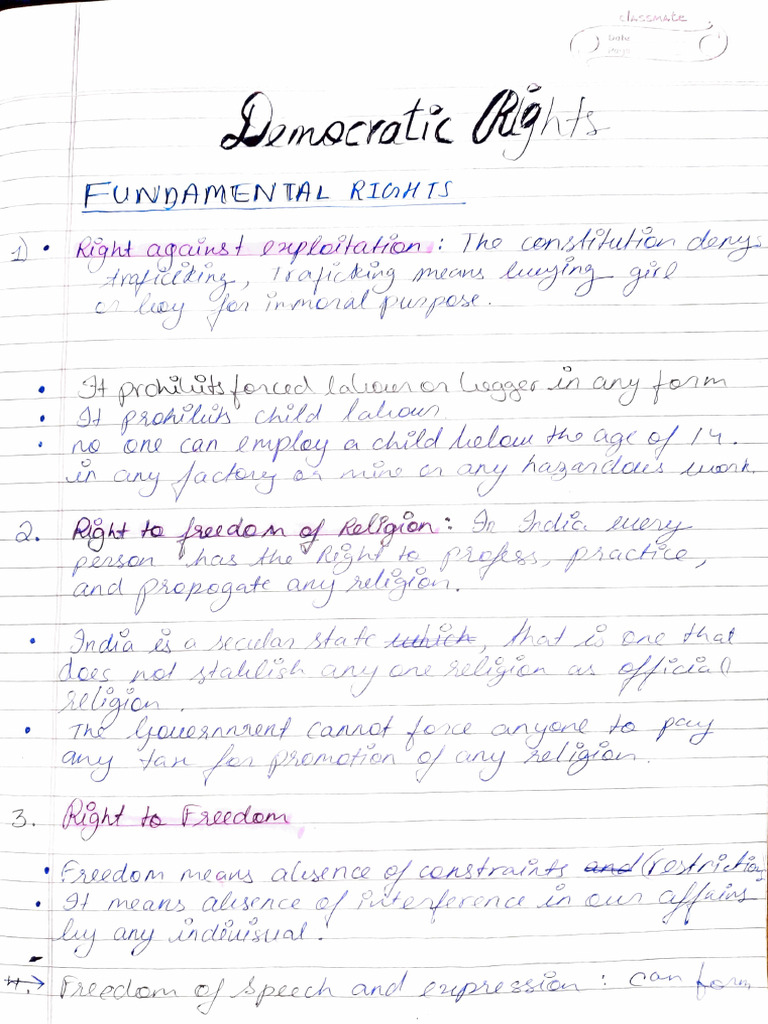 classmate
Date
Page
Democratic Rights
FUNDAMENTAL RIGHTS
1) • Right against exploitation : The constitution denys
traficking, Traficking means buying girl
or boy for inmoral purpose.
• It prohibits forced labour or begger in any form
• It prohibits child labour
• no one can employ a child below the age of 14.
in any factory or mine or any hazardous work.
2. Right to freedom of Religion : In India every
person has the Right to profess, practice,
and propogate any religion.
• India is a secular state which, that is one that
does not stablish any one religion as official
religion.
• The Government cannot force anyone to pay
any tax for promotion of any religion.
3. Right to Freedom
• Freedom means absence of constraints and (restrictions
• It means absence of interference in our affairs
by any indivisual.
4. → Freedom of speech and expression : can form